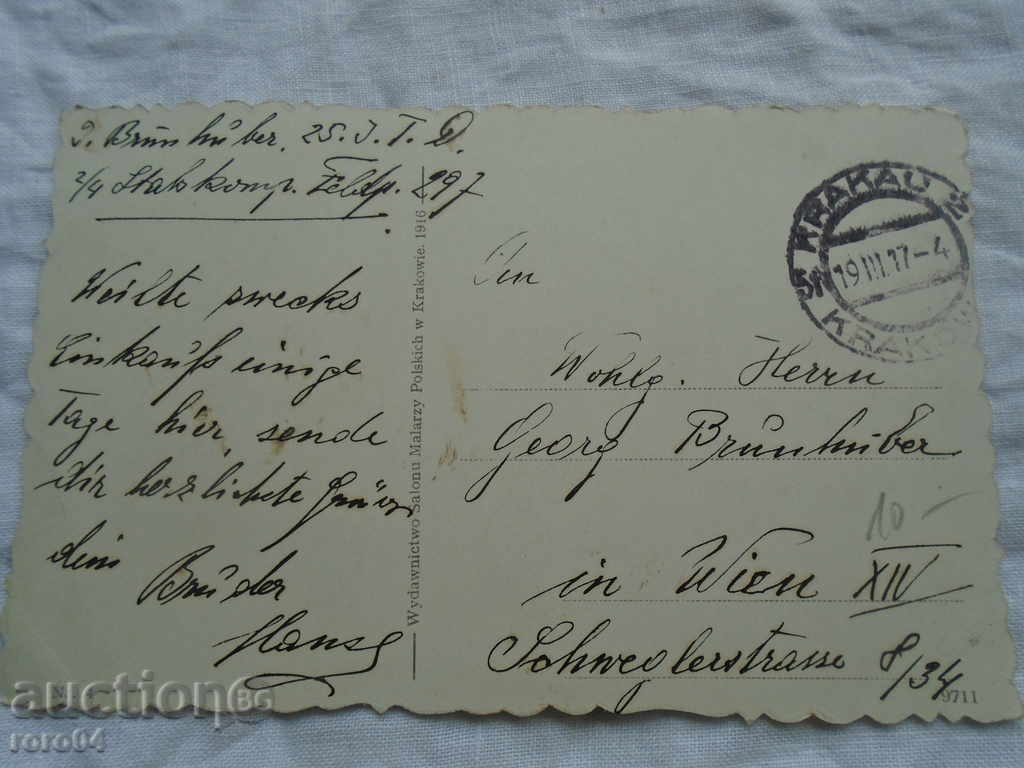 J. Brunhuber, 25. I. T. D.
2/4 Stabskomp. Feldp. 297
Weilte zwecks
Einkaufs einige
Tage hier, sende
dir herzlichste Grüsse
dein
Bruder
Hans
Wydawnictwo Salonu Malarzy Polskich w Krakowie. 1916
KRAKAU 2
19 III.17-4
KRAKÓW
Wohlg. Herrn
Georg Brunhuber
10-
in Wien XIV
Schweglerstrasse 8/34
9711
auctionBG
roro04